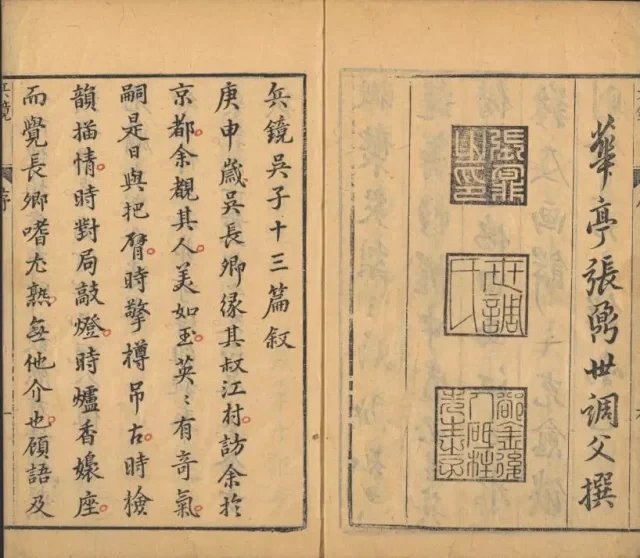 華亭張鼐世調父撰
張鼐之印
世調氏
兵鏡吳子十三篇叙
庚申歲吳長卿緣其叔江村訪余於
京都余觀其人美如玉英〻有奇氣
嗣是日與把臂時擎樽吊古時檢
韻描情時對局敲燈時爐香嬝座
而覺長卿嗜尤熟無他介也顧語及
兵鏡 序 一